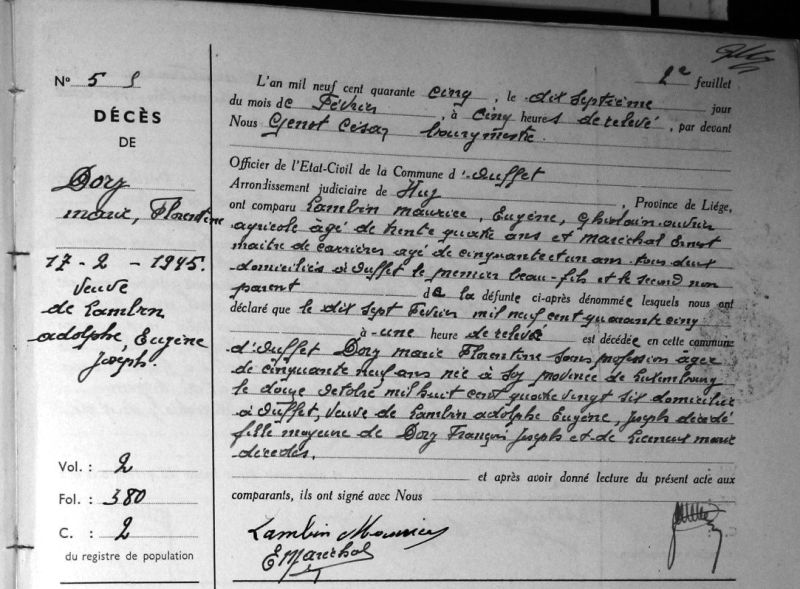 2e feuillet
N° 5
DÉCÈS
DE
Dory
marie, Florentine
17-2-1945.
Veuve
de Lambin
adolphe, Eugène
Joseph.
Vol. : 2
Fol. : 380
C. : 2
du registre de population
L'an mil neuf cent quarante cinq, le dix septième jour
du mois de Février, à cinq heures de relevé, par devant
Nous Genot César bourgmestre.
Officier de l'Etat-Civil de la Commune d'Ouffet
Arrondissement judiciaire de Huy, Province de Liége,
ont comparu Lambin maurice, Eugène, Ghislain ouvrier
agricole âgé de trente quatre ans et maréchal Ernest
maitre de carrières agé de cinquante et un ans tous deux
domiciliés à Ouffet le premier beau-fils et le second non
parent de la défunte ci-après dénommée lesquels nous ont
déclaré que le dix sept Février mil neuf cent quarante cinq
à une heure de relevé est décédée en cette commune
d'Ouffet Dory marie Florentine sans profession âgée
de cinquante neuf ans née à Soy province de Luxembourg
le douze octobre mil huit cent quatre vingt six domiciliée
à Ouffet, veuve de Lambin adolphe Eugène, Joseph décédé
fille majeure de Dory François Joseph et de marie
décédés.
et après avoir donné lecture du présent acte aux
comparants, ils ont signé avec Nous
Lambin Maurice
E Maréchal